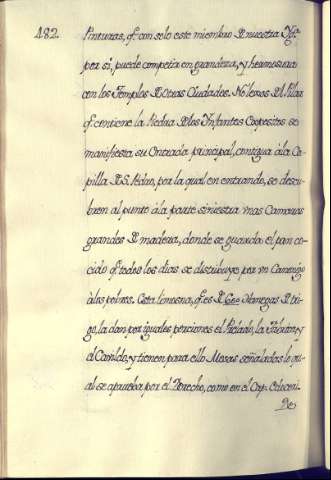 482.
Pinturas, q.e con solo este miembro D nuestra Yg.a
per si, puede competir en grandeza, y hermosura
con los Templos D otras Ciudades. No lexos D l Pilar
q.e contiene la Piedra D los Infantes Expositos se
manifiesta su Entrada principal, contigua á la Ca-
pilla D S. Pedro, por la qual en entrando, se descu-
bren al punto á la parte siniestra unas Camaras
grandes D madera, donde se guarda el pan co-
cido q.e todos los dias se distribuye por un Canonigo
á los pobres. Esta limosna, q.e es D 600 Hanegas D tri-
go, la dan por iguales porciones el Prelado, la Fabrica, y
el Cavildo, y tienen para ello Mesas señaladas lo qu-
al se aprueba por el Derecho, como en el Cap.
De